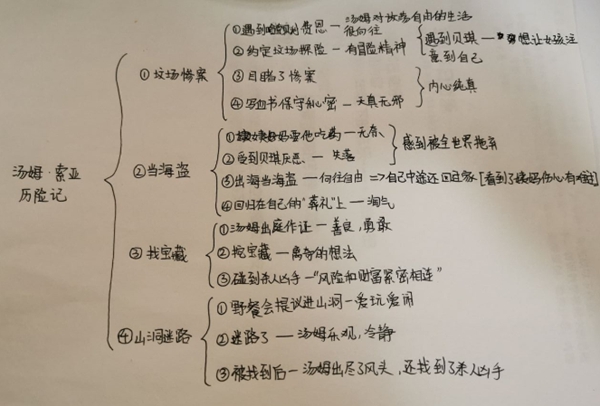 汤姆·索亚
历险记
①坟场惨案
①遇到 费恩—汤姆对放荡自由的生活
很向往
②约定坟场探险—有冒险精神
遇到贝琪— 想让女孩注
意到自己
③目睹了惨案
④写血书保守秘密—天真无邪
内心纯真
②当海盗
① 要他吃药—无奈、
②受到贝琪厌恶、—失落
感到被全世界抛弃
③出海当海盗—向往自由=>自己中途还回过家[看到了姨妈伤心有难过]
④回归在自己的"葬礼"上—淘气
③找宝藏
①汤姆出庭作证—善良,勇敢
②挖宝藏—离奇的想法
③碰到杀人凶手—"风险和财富紧密相连"
④山洞迷路
①野餐会提议进山洞—爱玩爱闹
②迷路了—汤姆乐观,冷静
③被找到后—汤姆出尽了风头,还找到了杀人凶手